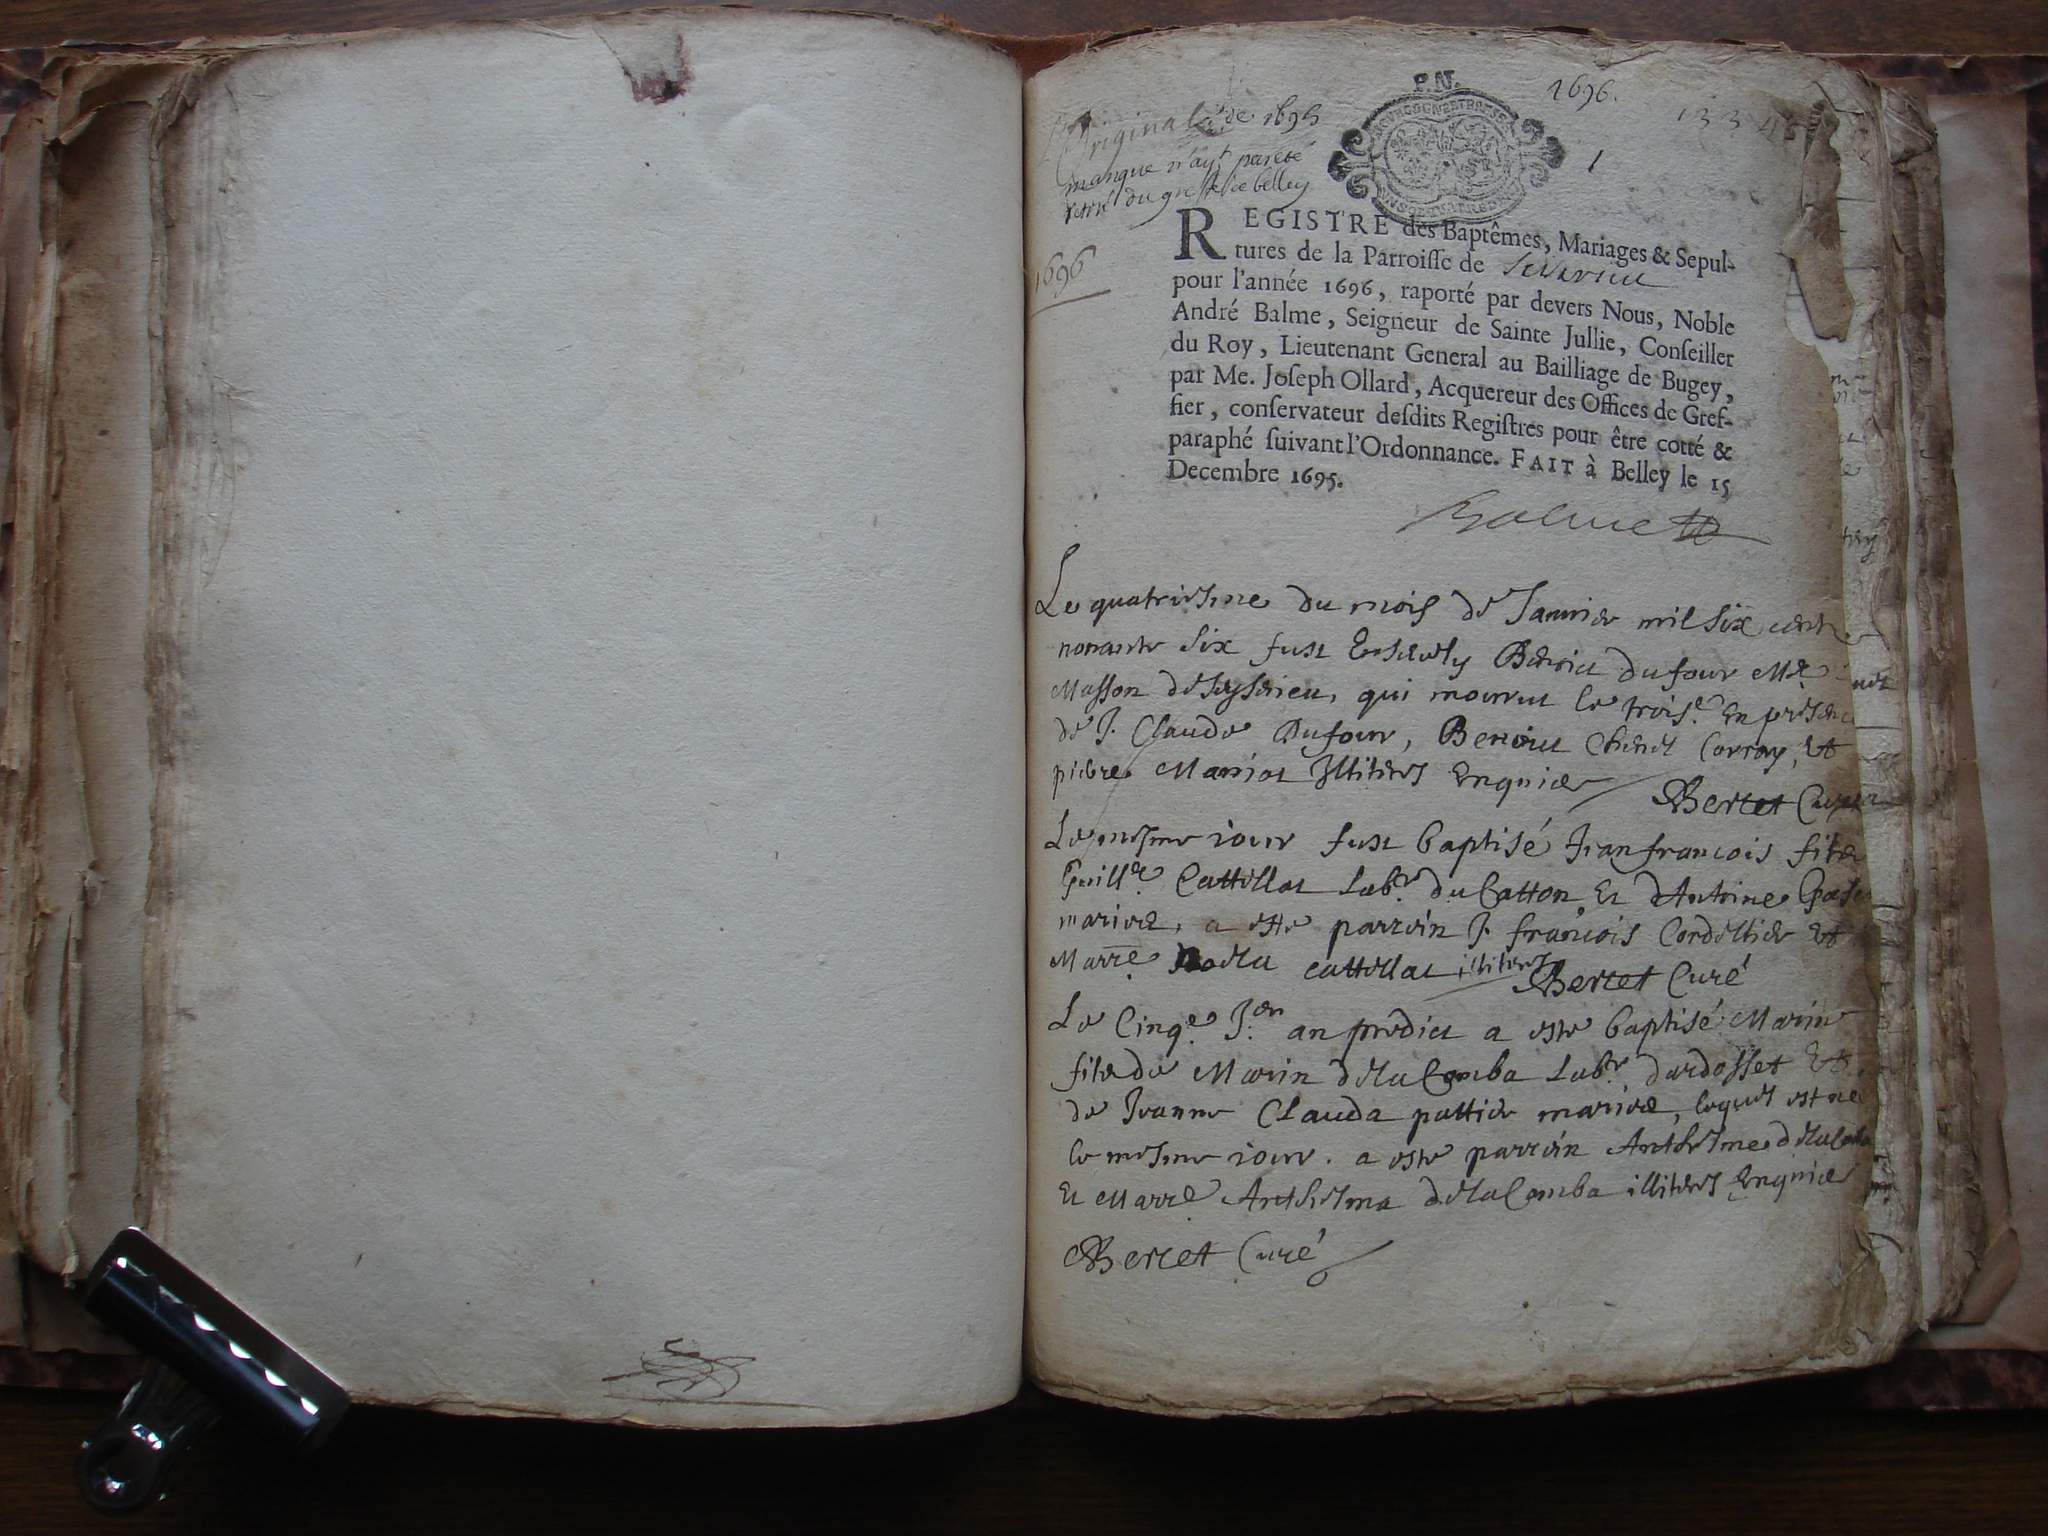 P.N.
1696.
1
Original de 1695
manque n'ayt par esté
retiré du greffe de belley
1696
REGISTRE des Baptêmes, Mariages & Sepul-
tures de la Parroisse de
pour l'année 1696, raporté par devers Nous, Noble
André Balme, Seigneur de Sainte Jullie, Conseiller
du Roy, Lieutenant General au Bailliage de Bugey,
par Me. Joseph Ollard, Acquereur des Offices de Gref-
fier, conservateur desdits Registres pour être cotté &
paraphé suivant l'Ordonnance. FAIT à Belley le 15
Decembre 1695.
Balme
Le quatriesme du mois de Janvier mil six cent
nonante six fust Ensevely Benoict Dufour Mre
Masson de Seyssieu, qui mourut le troise. En presence
de J. Claude Dufour, Benoict Corray, Et
pierre Marriot Illiteres Enquies
Bertet Curé
Le mesme iour fust baptisé Jean francois fils de
Guille. Cattillat Labr. du Catton Et d'Antoine
mariez, a este parrein J. francois Cordellier Et
Marre. cattillat illiteres Bertet Curé
Le Cinqe. J.er an predict a este baptisé Marin
fils de Marin delaComba Labr. dardosset Et
de Jeanne Clauda pattier mariez, lequel est né
le mesme iour. a este parrein Anthelme
Et Marre Anthelma delaComba illiteres Enquis
Bertet Curé